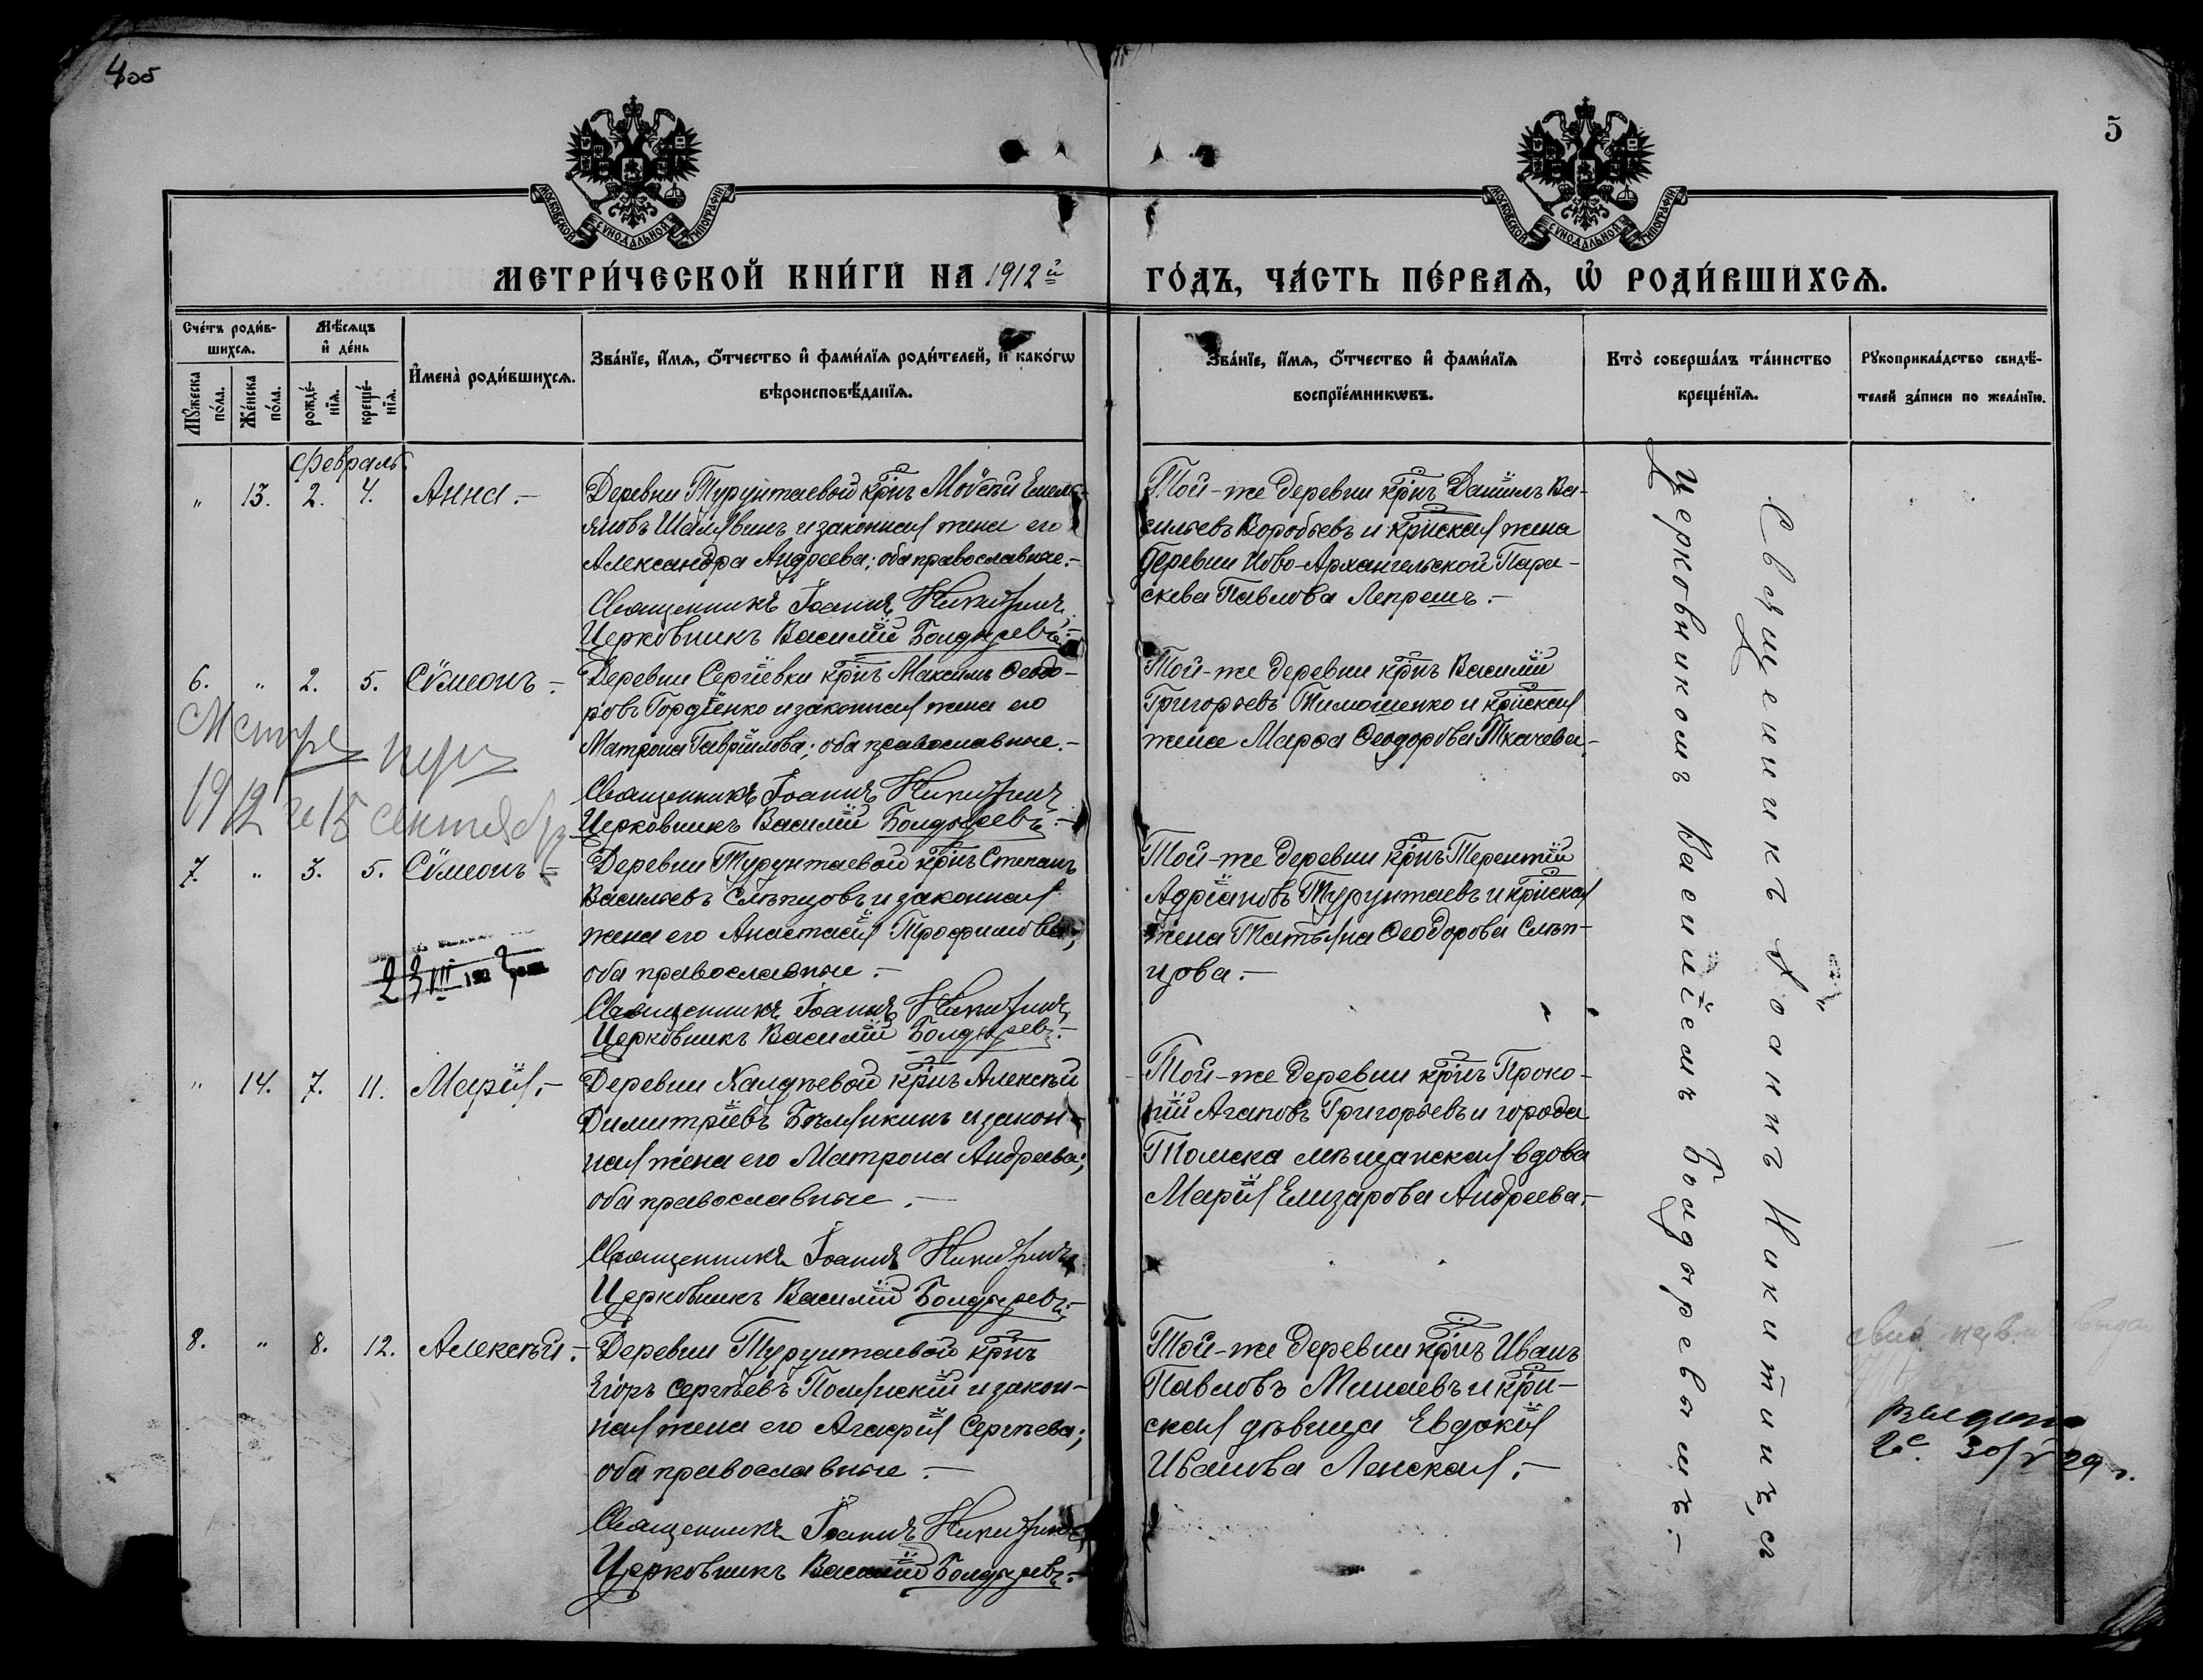 4об
5
МОСКОВСКОЙ СѴНОДАЛЬНОЙ ТИПОГРАФІИ
МОСКОВСКОЙ СѴНОДАЛЬНОЙ ТИПОГРАФІИ
МЕТРИ́ЧЕСКОЙ КНИ́ГИ НА 1912й
ГО́ДЪ, ЧА́СТЬ ПЕ́РВАѦ, Ѡ҆ РОДИ́ВШИХСѦ.
Сче́тъ роди́в-
шихсѧ.
Мꙋ́жеска
по́ла.
Же́нска
по́ла.
Мѣ́сѧцъ
и҆ де́нь
рожде́-
нїѧ.
креще́-
нїѧ.
И҆мена̀ роди́вшихсѧ.
Зва́нїе, и҆́мѧ, ѻ҆́тчество и҆ фами́лїѧ роди́телей, и҆ како́гѡ
вѣроисповѣ́данїѧ.
Зва́нїе, и҆́мѧ, ѻ҆́тчество и҆ фами́лїѧ
воспрїе́мникѡвъ.
Кто̀ соверша́лъ та́инство
креще́нїѧ.
Рꙋкоприкла́дство свидѣ́-
телей за́писи по жела́нїю.
Февраль
" 13. 2. 4. Анна.-
Деревни Турунтаевой кр̃інъ Моѵсѣй Емель-
яновъ Шалявинъ и законная жена его
Александра Андреева; оба православные.-
Священникъ Іоаннъ Никитинъ,
Церковникъ Василій Болдыревъ.-
Той-же деревни кр̃інъ Даніилъ Ва-
сильевъ Воробьевъ и кр̃иская жена
деревни Ново-Архангельской Пара-
скева Павлова Лепрешъ.-
6. " 2. 5. Сѵмеонъ.-
Деревни Сергіевки кр̃інъ Максимъ Ѳеодо-
ровъ Гордіенко и законная жена его
Матрона Гавріилова; оба православные.-
Священникъ Іоаннъ Никитинъ
Церковникъ Василій Болдыревъ.-
Той-же деревни кр̃інъ Василій
Григорьевъ Тимошенко и кр̃іская
жена Марѳа Ѳеодорова Ткачева.-
1912 г 15 сентября
7. " 3. 5. Сѵмеонъ
Деревни Турунтаевой кр̃інъ Степанъ
Васильевъ Слѣпцовъ и законная
жена его Анастасія Трофимова;
оба православные.-
Священникъ Іоаннъ Никитинъ,
Церковникъ Василій Болдыревъ.-
Той-же деревни кр̃інъ Терентій
Адріановъ Турунтаевъ и кр̃іская
жена Татьяна Ѳеодорова Слѣп-
цова.-
23 III 192
" 14. 7. 11. Марія.-
Деревни Халдѣевой кр̃інъ Алексѣй
Димитріевъ Бѣляикинъ и закон-
ная жена его Матрона Андреева;
оба православные.-
Священникъ Іоаннъ Никитинъ
Церковникъ Василій Болдыревъ.-
Той-же деревни кр̃інъ Проко-
пій Агаповъ Григорьевъ и города
Томска мѣщанская вдова
Марія Елизарова Андреева.-
8. " 8. 12. Алексѣй.-
Деревни Турунтаевой кр̃інъ
Егоръ Сергѣевъ Полянскій и закон-
ная жена его Агафія Сергѣева;
оба православные.-
Священникъ Іоаннъ Никитинъ
Церковникъ Василій Болдыревъ.-
Той-же деревни кр̃інъ Иванъ
Павловъ Минаевъ и кр̃и-
ская дѣвица Евдокія
Иванова Ленская.-
Священникъ Іоаннъ Никитинъ, съ
Церковникомъ Василіемъ Болдыревымъ.-
29 г.